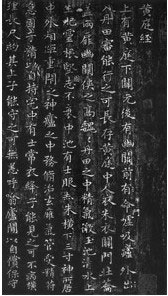 黃庭經
上有黃庭下關元後有幽闕前有命門噓吸廬外出
入丹田審能行之可長存黃庭中人衣朱衣關門壯籥
蓋兩扉幽闕俠之高巍巍丹田之中精氣微玉池清水上
生肥靈根堅志不衰中池有士服赤朱橫下三寸神所居
中外相距重閉之神廬之中務脩治玄膺氣管受精符
急固子精以自持宅中有士常衣絳子能見之可不病橫
理長尺約其上子能守之可無恙呼噏廬間以自償保守